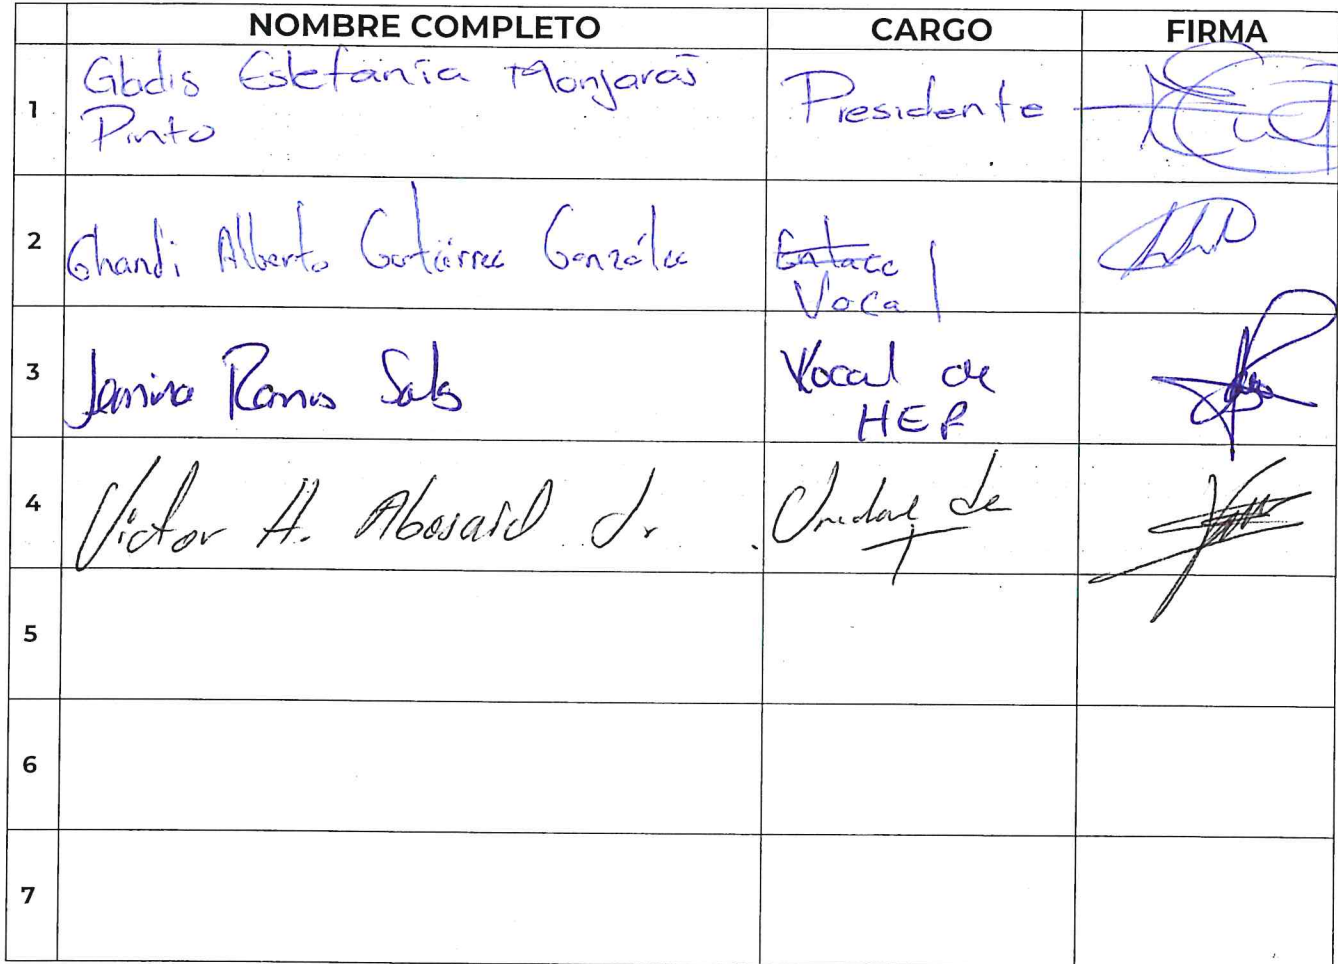 NOMBRE COMPLETO CARGO FIRMA
1 Gladis Estefanía Monjarás Presidente
Pinto
2 Ghandi Alberto Gutiérrez González Enlace
Vocal
3 Jemina Ramos Salas Vocal de
HEP
4 Victor H. Abosaid Jr. Unidad de
T
5
6
7